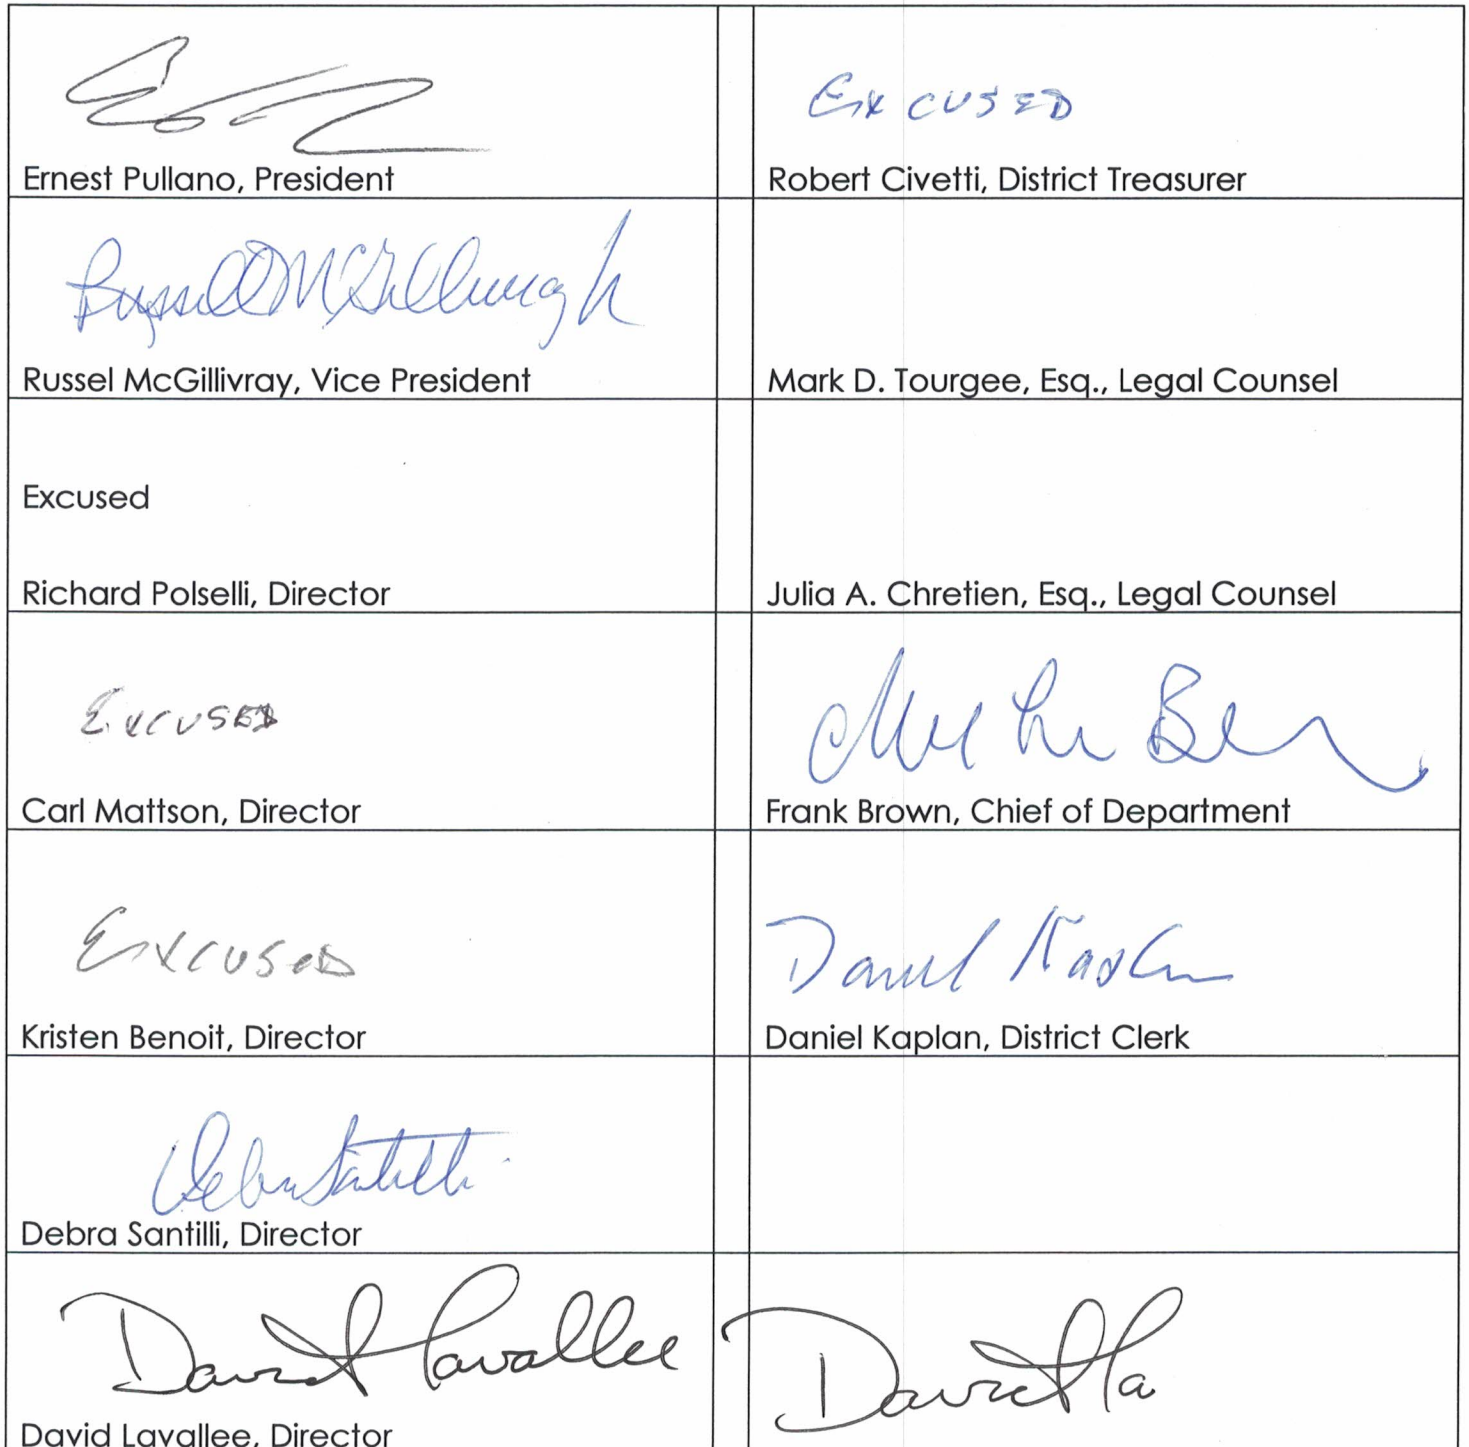 Excused
Ernest Pullano, President
Robert Civetti, District Treasurer
Russell McGillivray Jr
Russel McGillivray, Vice President
Mark D. Tourgee, Esq., Legal Counsel
Excused
Richard Polselli, Director
Julia A. Chretien, Esq., Legal Counsel
Excused
Carl Mattson, Director
Frank Brown, Chief of Department
Excused
Daniel Kaplan
Kristen Benoit, Director
Daniel Kaplan, District Clerk
Debra Santilli
Debra Santilli, Director
David Lavallee
David La
David Lavallee, Director